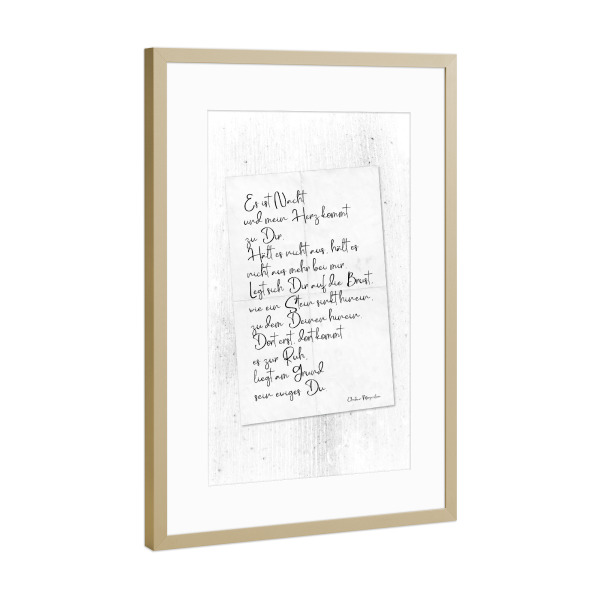 Es ist Nacht
und mein Herz kommt
zu Dir.
Hält es nicht aus, hält es
nicht aus mehr bei mir.
Legt sich Dir auf die Brust,
wie ein Stein sinkt hinein,
zu dem Deinen hinein.
Dort erst, dort kommt
es zur Ruh,
liegt am Grund
sein ewiges Du.
Christian Morgenstern